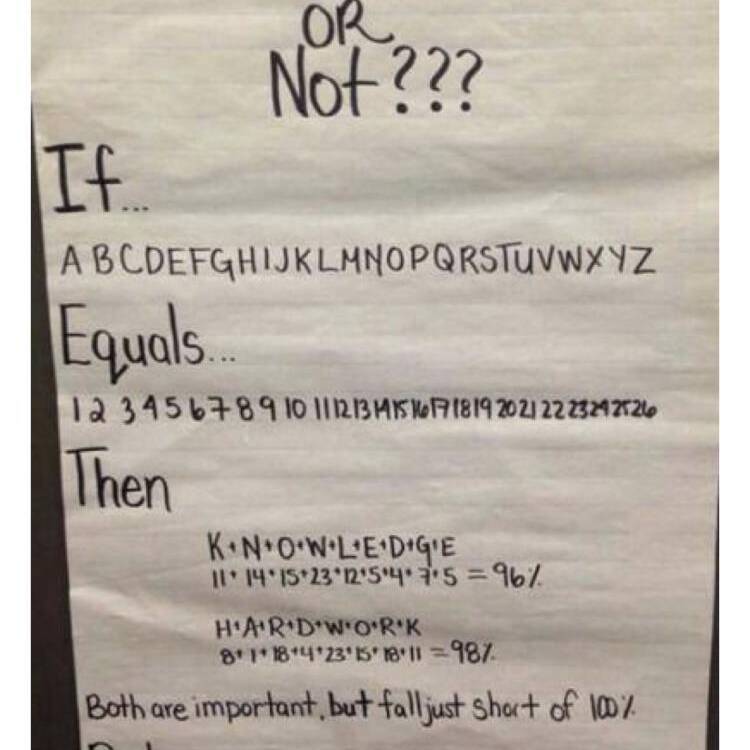 OR
Not???
If...
A B C D E F G H I J K L M N O P Q R S T U V W X Y Z
Equals...
1 2 3 4 5 6 7 8 9 10 11 12 13 14 15 16 17 18 19 20 21 22 23 24 25 26
Then
K+N+O+W+L+E+D+G+E
11+14+15+23+12+5+4+7+5=96%
H+A+R+D+W+O+R+K
8+1+18+4+23+15+18+11=98%
Both are important, but fall just short of 100%